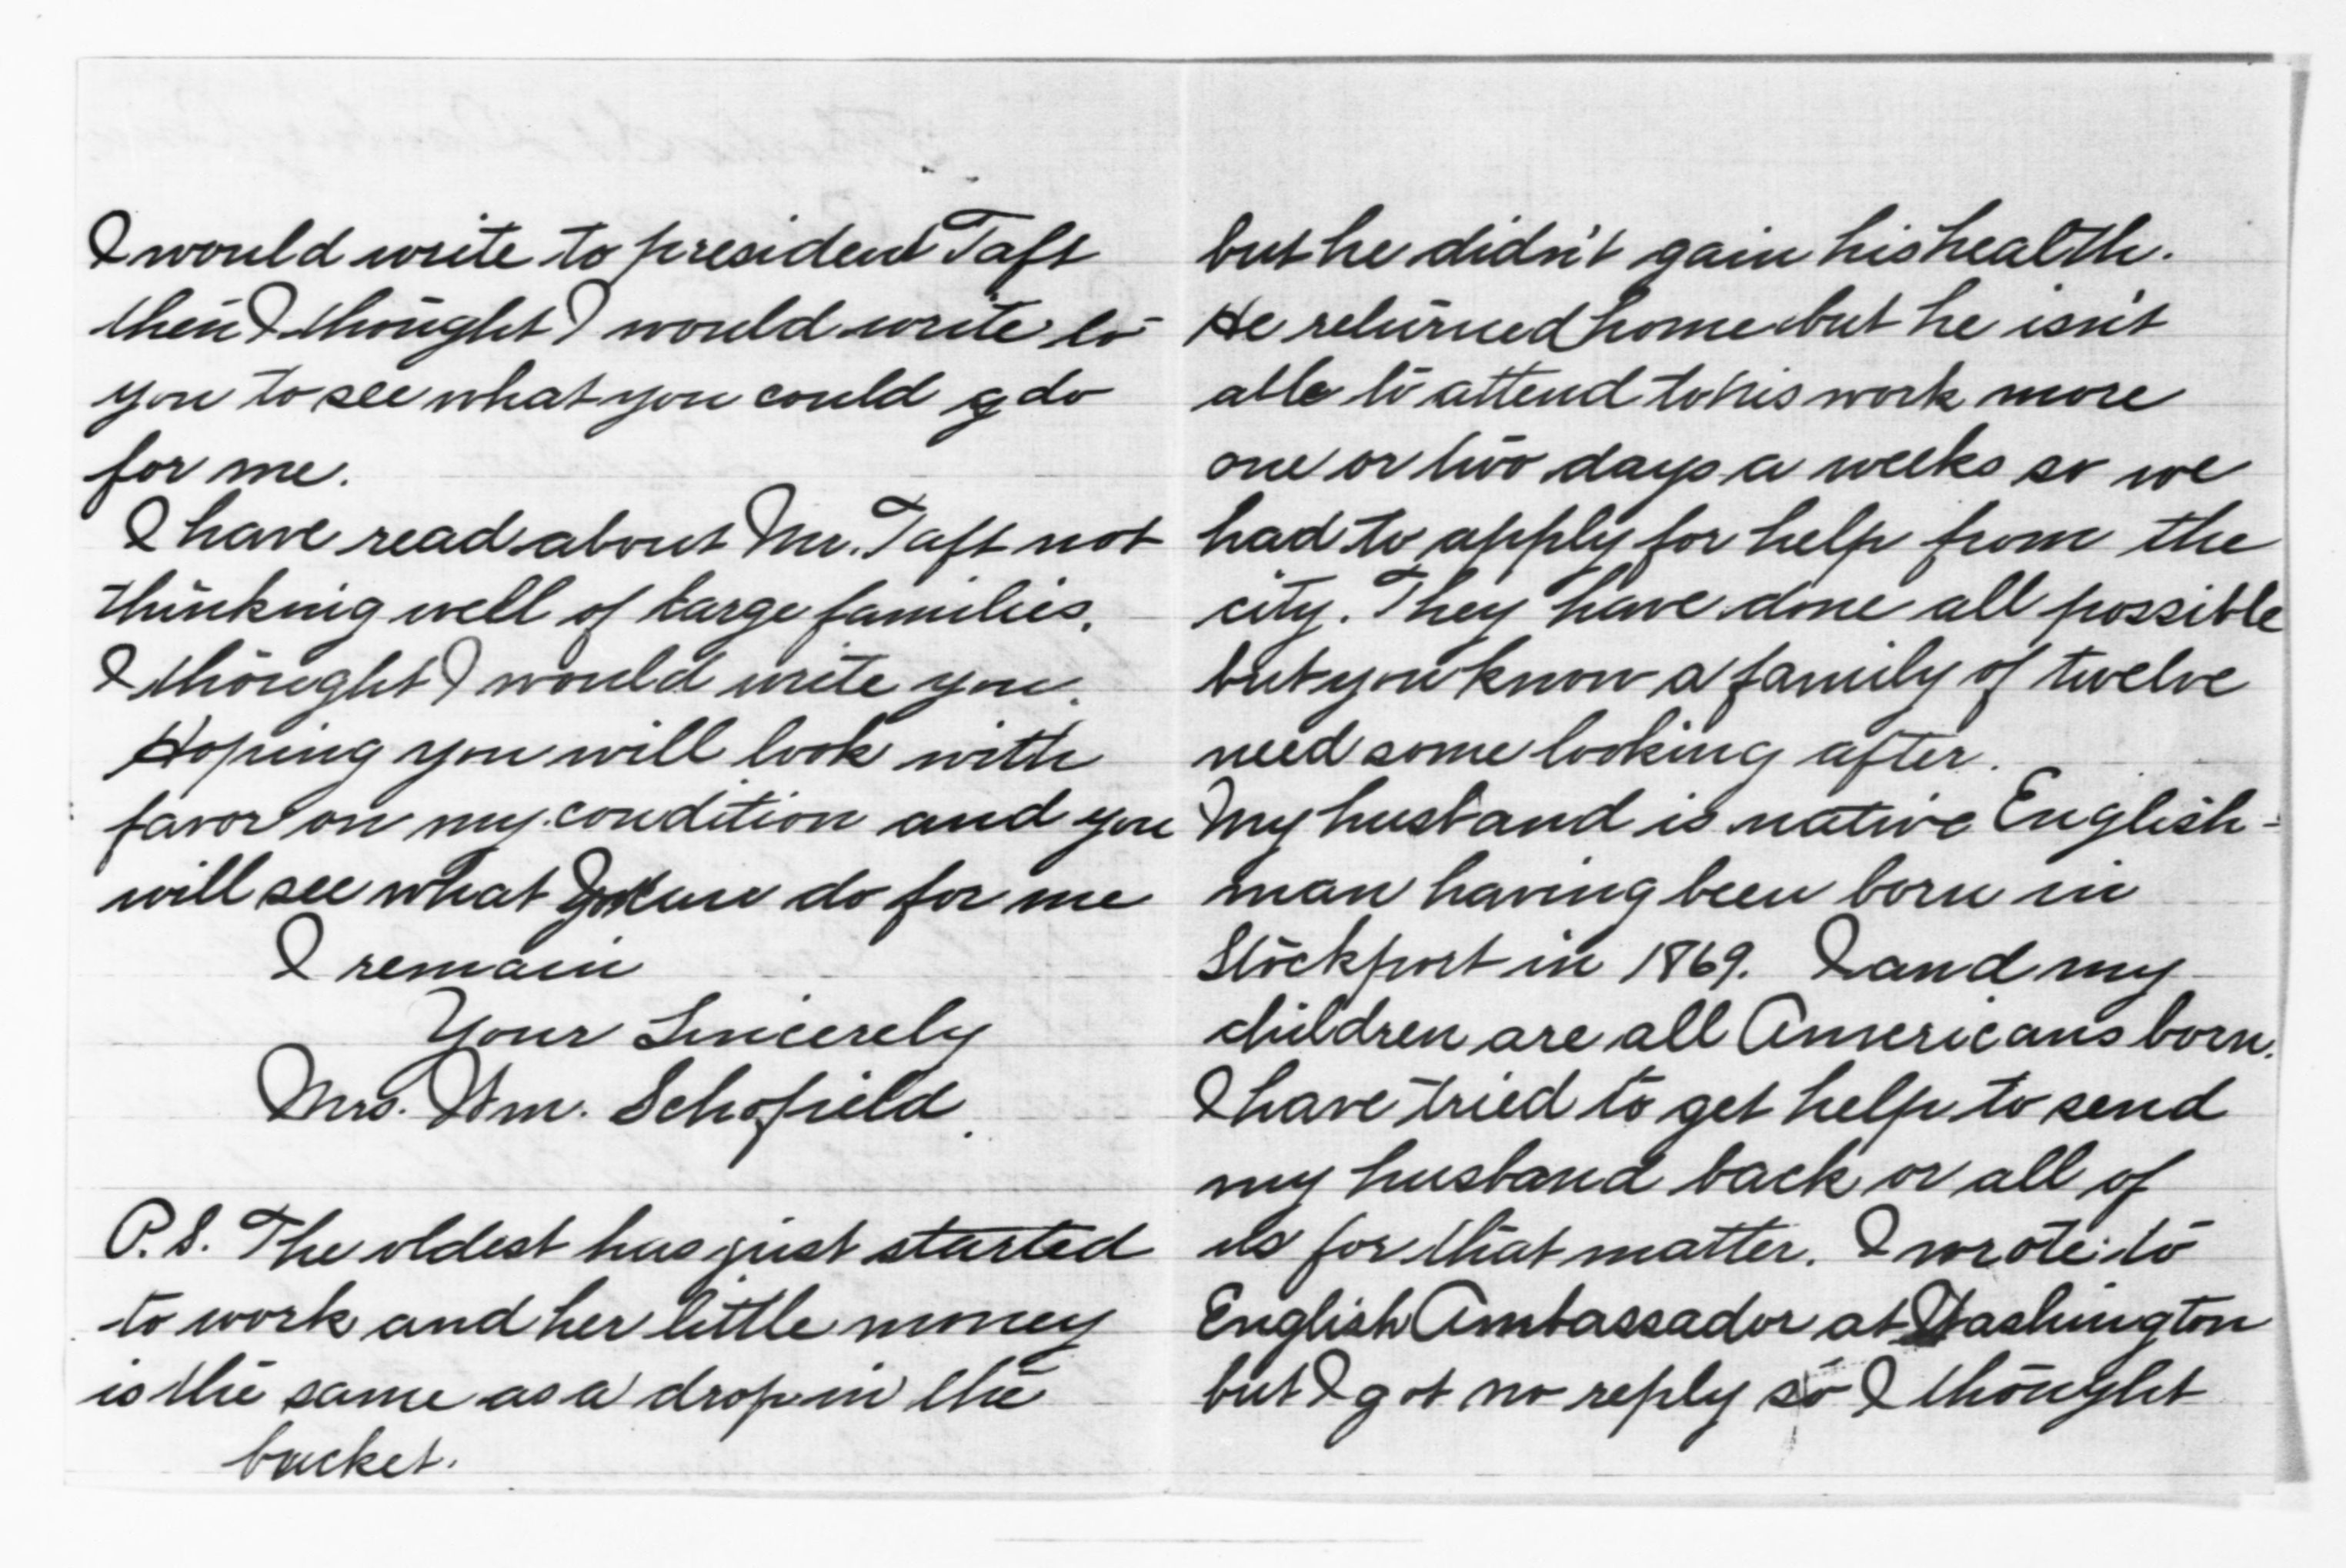 I would write to president Taft
then I thought I would write to
you to see what you could g do
for me.
I have read about Mr. Taft not
thinking well of large families.
I thought I would write you.
Hoping you will look with
favor on my condition and you
will see what you can do for me
I remain
Your Sincerely
Mrs. Wm. Schofield.
P.S. The oldest has just started
to work and her little money
is the same as a drop in the
bucket.
but he didn't gain his health.
He returned home but he isn't
able to attend to his work more
one or two days a weeks so we
had to apply for help from the
city. They have done all possible
but you know a family of twelve
need some looking after.
My husband is native English-
man having been born in
Stockport in 1869. I and my
children are all Americans born.
I have tried to get help to send
my husband back or all of
us for that matter. I wrote to
English Ambassador at Washington
but I got no reply so I thought